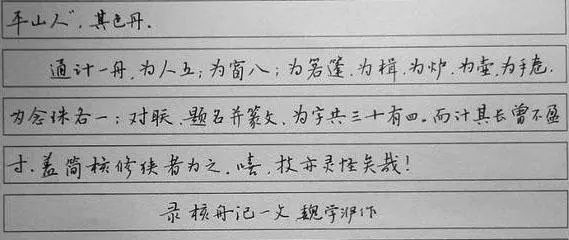 平山人”,其色丹.
通计一舟,为人五;为窗八;为箬篷.为楫.为炉.为壶.为手卷.
为念珠各一;对联.题名并篆文.为字共三十有四。而计其长曾不盈
寸.盖简核修狭者为之.嘻,技亦灵怪矣哉!
录核舟记一文 魏学洢作